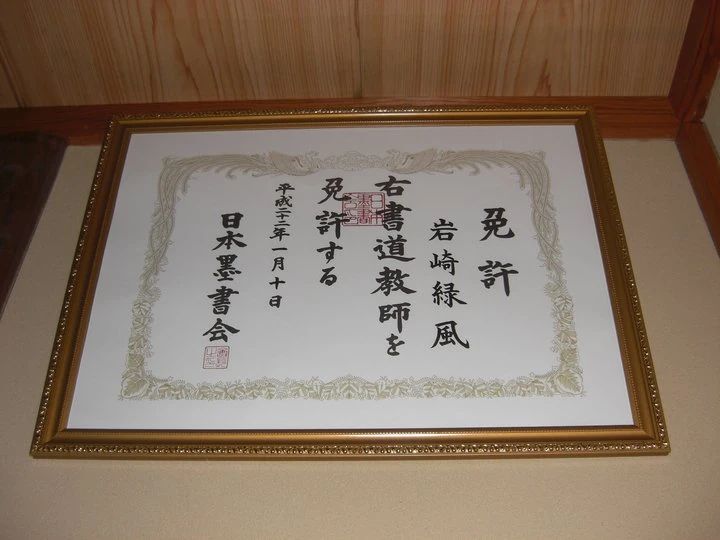 免許
岩崎緑風
右書道教師を
免許する
平成二十二年一月十日
日本墨書会